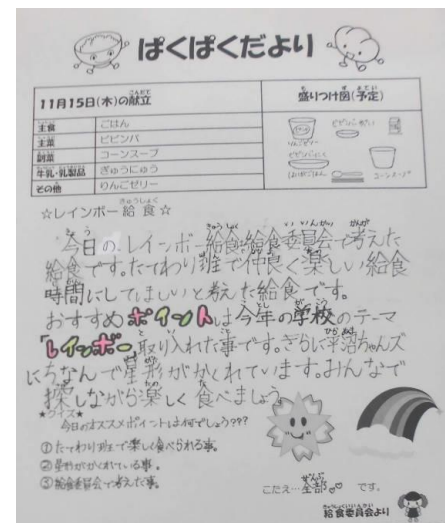 ぱくぱくだより
11月15日(木)の献立
盛りつけ図(予定)
主食 ごはん
主菜 ビビンバ
副菜 コーンスープ
牛乳・乳製品 ぎゅうにゅう
その他 りんごゼリー
りんごゼリー
コーンスープ
☆レインボー給食☆
今日の、レインボー給食は給食委員会で考えた
給食です。たてわり班で仲良く楽しい給食
時間にしてほしいと考えた給食です。
おすすめポイントは今年の学校のテーマ
「レインボー取り入れた事です。さらに平沼ちゃんズ
にちなんで星形がかくれています。みんなで
探しながら楽しく食べましょう。
★クイズ★
今日のオススメポイントは何でしょう???
①たてわり班で楽しく食べられる事。
②星形がかくれている事。
③給食委員会で考えた事。
こたえ…全部 です。
給食委員会より